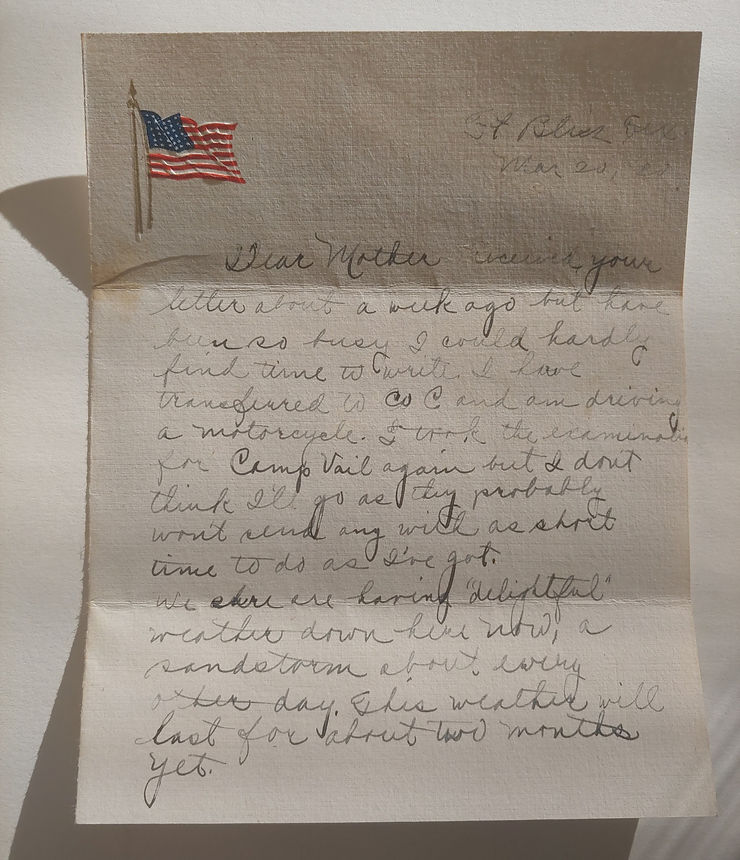 Ft Bliss Tex.
Mar 20,
Dear Mother received your
letter about a week ago but have
been so busy I could hardly
find time to write. I have
transferred to Co C and am driving
a motorcycle. I took the examination
for Camp Vail again but I dont
think I'll go as they probably
won't send any with as short
time to do as I've got.
We sure are having "delightful"
weather down here now, a
sandstorm about every
other day. This weather will
last for about two months
yet.